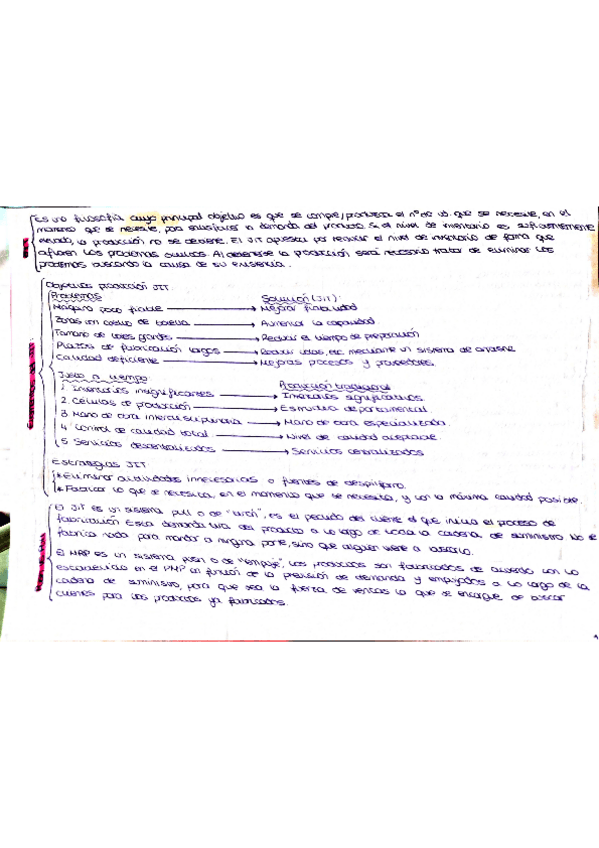 Es una filosofía cuyo principal objetivo es que se compre/produzca el nº de ud. que se necesite, en el
momento que se necesite, para satisfacer la demanda del producto. Si el nivel de inventario es suficientemente
elevado, la producción no se detiene. El JIT apuesta por reducir el nivel de inventario de forma que
afloren los problemas ocultos. Al detenerse la producción será necesario tratar de eliminar los
problemas buscando la causa de su existencia.
JIT
Objetivos producción JIT:
Problemas Solución (JIT):
Máquina poco fiable → Mejorar fiabilidad
Zonas con cuellos de botella → Aumentar la capacidad
Tamaño de lotes grandes → Reducir el tiempo de preparación
Plazos de fabricación largos → Reducir colas, etc mediante un sistema de arrastre
Calidad deficiente → Mejoras procesos y proveedores.
Elementos del JIT
Justo a tiempo Producción tradicional
1. Inventarios insignificantes → Inventarios significativos.
2. Células de producción → Estructura departamental.
3. Mano de obra → Mano de obra especializada.
4. Control de calidad total → Nivel de calidad aceptable.
5. Servicios descentralizados → Servicios centralizados
Estrategias JIT
* Eliminar actividades innecesarias o fuentes de despilfarro.
* Fabricar lo que se necesita, en el momento que se necesita, y con la máxima calidad posible.
El JIT es un sistema pull o de "tirón", es el pedido del cliente el que inicia el proceso de
fabricación. Esta demanda tira del producto a lo largo de toda la cadena de suministro. No se
fabrica nada para mandar a ninguna parte, sino que alguien viene a buscarlo.
El MRP es un sistema push o de "empuje", los productos son fabricados de acuerdo con lo
establecido en el PMP en función de la previsión de demanda y empujados a lo largo de la
cadena de suministro, para que sea la fuerza de ventas la que se encargue de buscar
clientes para los productos ya fabricados.